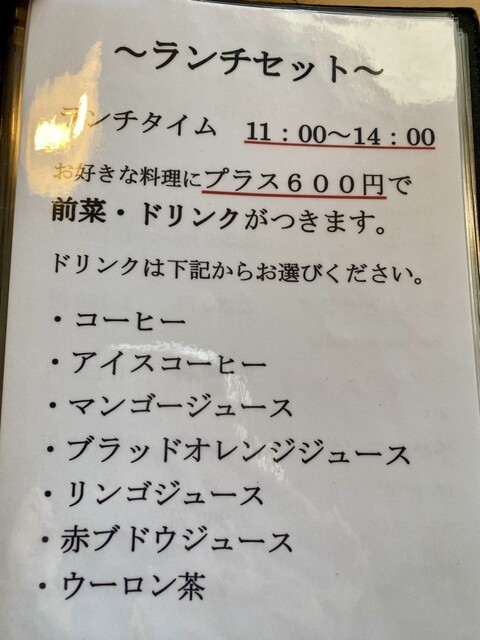 ～ランチセット～
ランチタイム 11：00～14：00
お好きな料理にプラス６００円で
前菜・ドリンクがつきます。
ドリンクは下記からお選びください。
・コーヒー
・アイスコーヒー
・マンゴージュース
・ブラッドオレンジジュース
・リンゴジュース
・赤ブドウジュース
・ウーロン茶